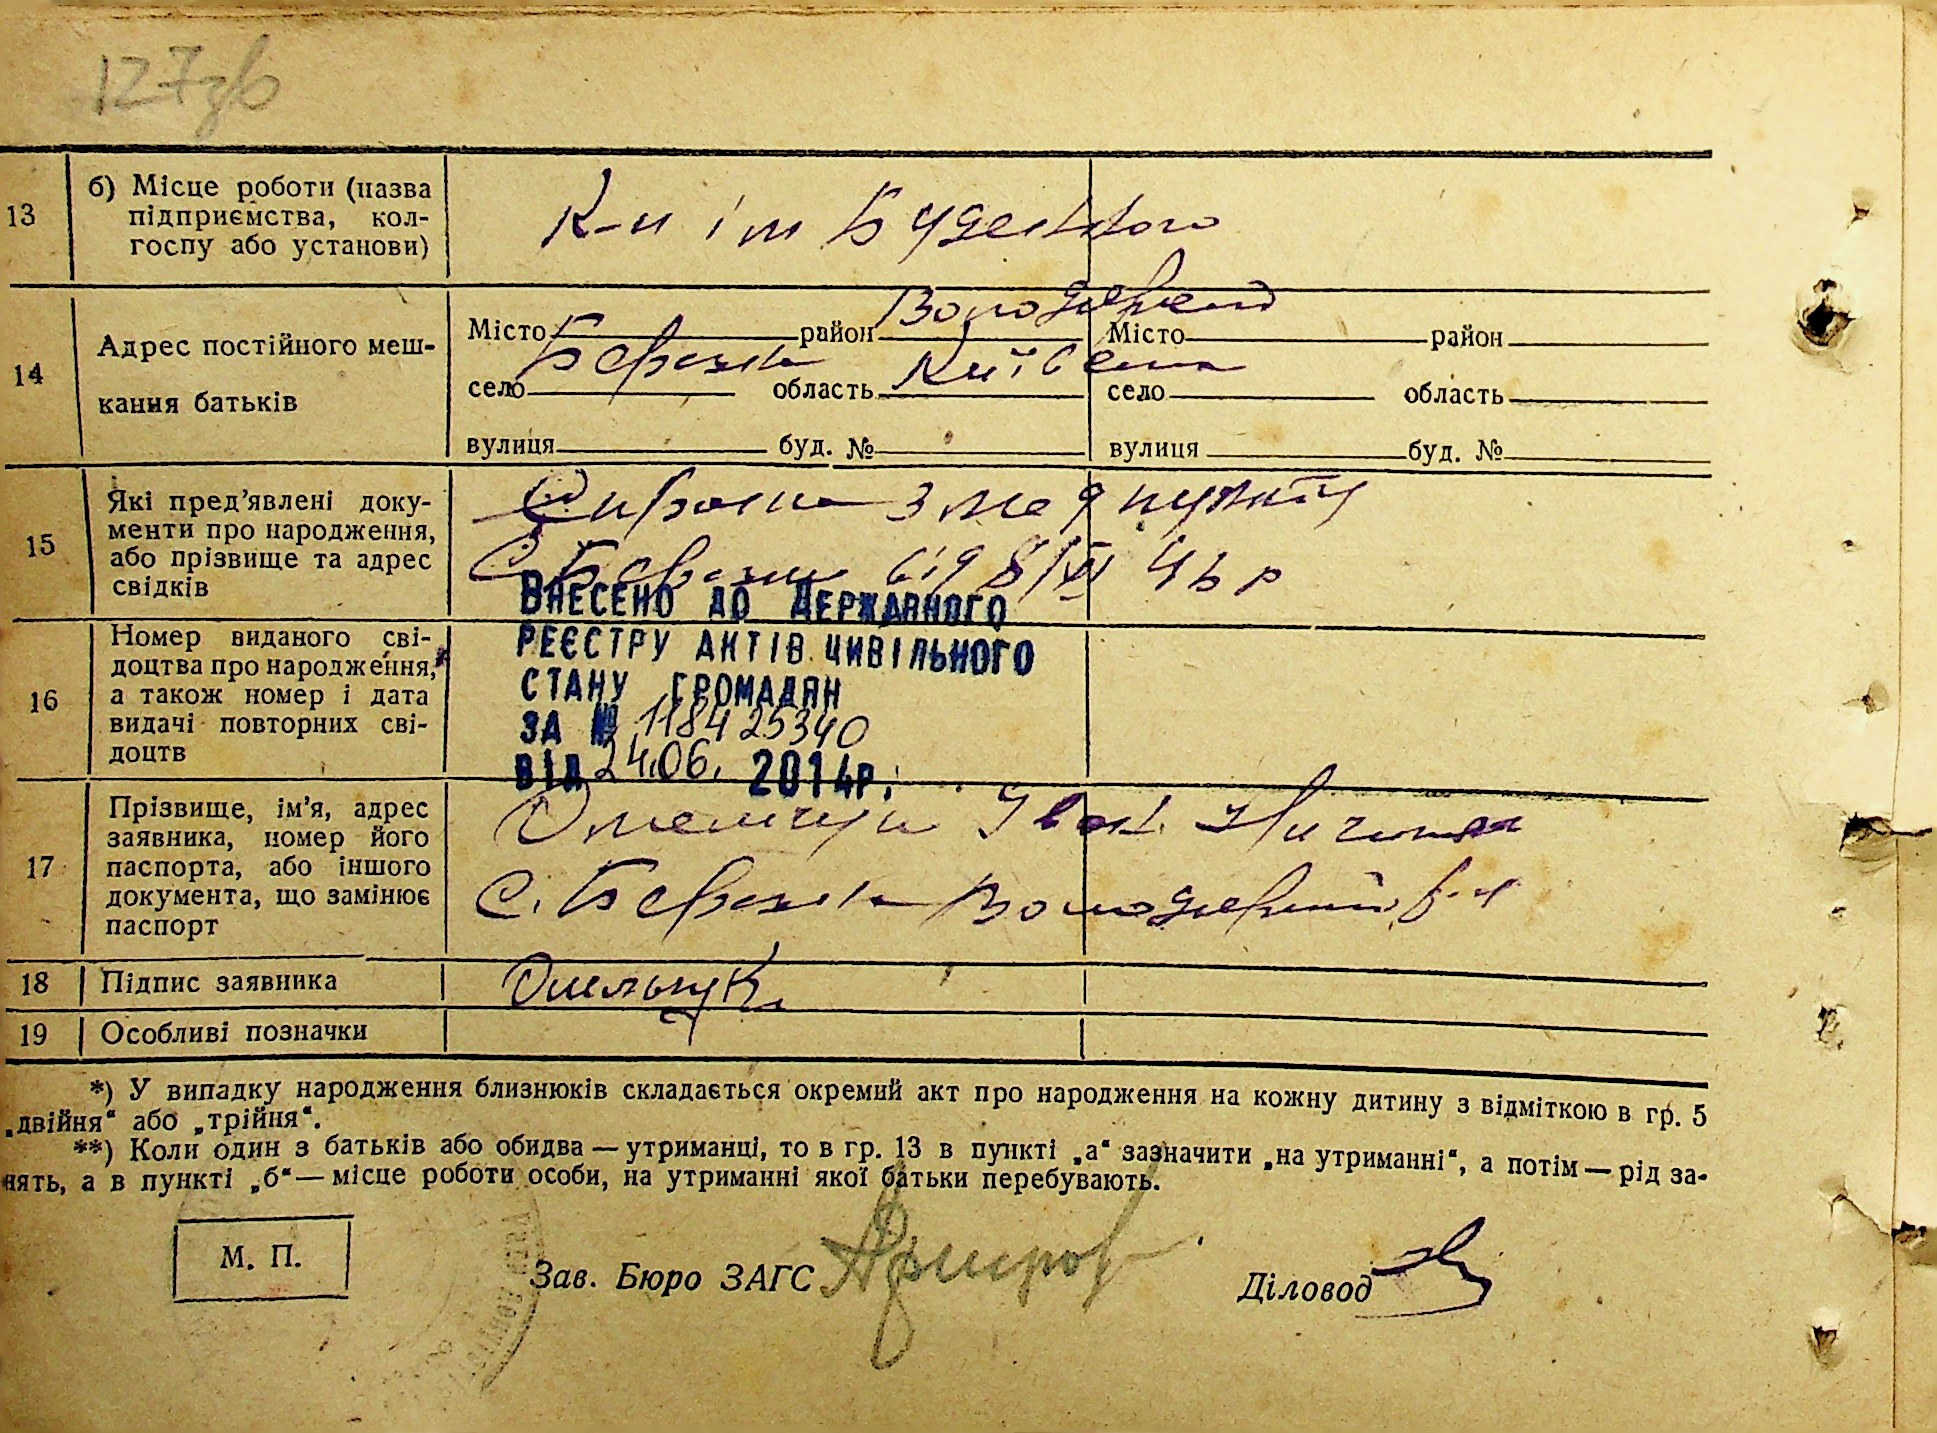 127зв
13
б) Місце роботи (назва
підприємства, кол-
госпу або установи)
К-п ім Буденного
14
Адрес постійного меш-
кання батьків
Місто район Володарськ Місто район
село Березна область Київська село область
вулиця буд. № вулиця буд. №
15
Які пред’явлені доку-
менти про народження,
або прізвище та адрес
свідків
з мед пункту
С. Березни від 8/XI 46 р
16
Номер виданого сві-
доцтва про народження,
а також номер і дата
видачі повторних сві-
доцтв
ВНЕСЕНО ДО ДЕРЖАВНОГО
РЕЄСТРУ АКТІВ ЦИВІЛЬНОГО
СТАНУ ГРОМАДЯН
ЗА № 118425340
ВІД 24.06. 2014р.
17
Прізвище, ім’я, адрес
заявника, номер його
паспорта, або іншого
документа, що замінює
паспорт
Омельчук Іван
С. Березна Володарський р-н
18
Підпис заявника
Омельчук
19
Особливі позначки
*) У випадку народження близнюків складається окремий акт про народження на кожну дитину з відміткою в гр. 5
„двійня“ або „трійня“.
**) Коли один з батьків або обидва — утриманці, то в гр. 13 в пункті „а“ зазначити „на утриманні“, а потім — рід за-
нять, а в пункті „б“ — місце роботи особи, на утриманні якої батьки перебувають.
М. П.
Зав. Бюро ЗАГС
Діловод